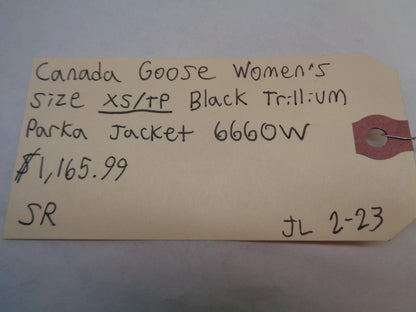 Canada Goose Women's
Size XS/TP Black Trillium
Parka Jacket 6660W
$1,165.99
SR
JL 2-23